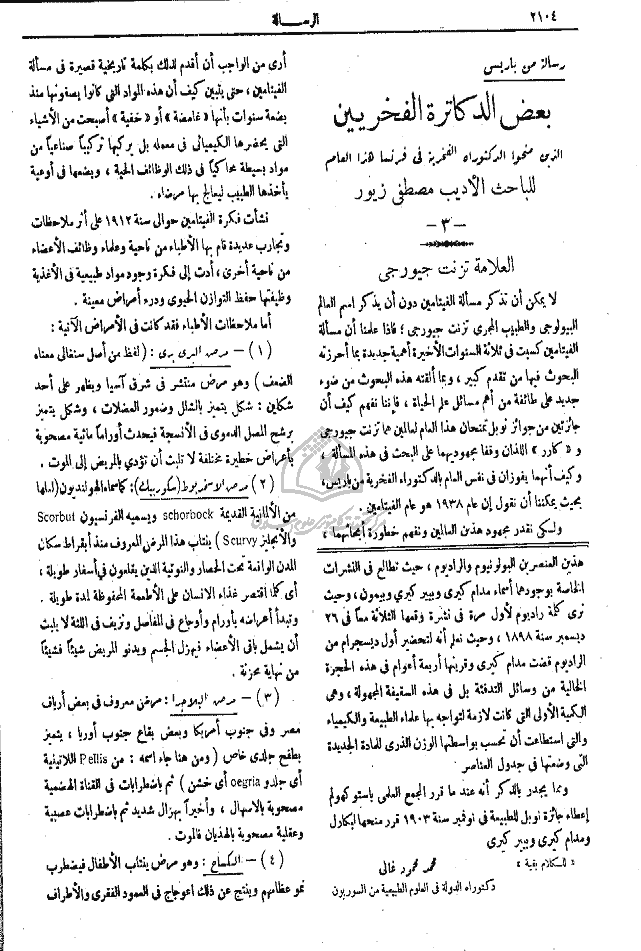 ٢١٠٤
الرسالة
رسالة من باريس
بعض الدكاترة الفخريين
الذين منحوا الدكتوراه الفخرية في فرنسا هذا العام
للباحث الأديب مصطفى زيور
— ٣ —
العلامة تزنت جيورجى
لا يمكن أن تذكر مسألة الفيتامين دون أن يذكر اسم العالم
البيولوجى والطبيب المجرى تزنت جيورجى ؛ فاذا علمنا أن مسألة
الفيتامين كسبت فى ثلاثة السنوات الأخيرة أهمية جديدة بما أحرزته
البحوث فيها من تقدم كبير ، وبما ألقته هذه البحوث من ضوء
جديد على طائفة من أهم مسائل علم الحياة ، فإننا نفهم كيف أن
جائزتين من جوائز نوبل تمنحان هذا العام لعالمين هما تزنت جيورجى
و « كارر » اللذان وقفا مجهوديهما على البحث فى هذه المسألة ،
وكيف أنهما يفوزان فى نفس العام بالدكتوراه الفخرية من باريس ،
بحيث يمكننا أن نقول إن عام ١٩٣٨ هو عام الفيتامين .
ولكى نقدر مجهود هذين العالمين ونفهم خطورة أبحاثهما ،
هذين العنصرين البولونيوم والراديوم ، حيث تطالع فى النشرات
الخاصة بوجودهما أسماء مدام كيرى وبيير كيرى وبيمون ، وحيث
ترى كلمة راديوم لأول مرة فى نشرة وقعها الثلاثة معاً فى ٢٦
ديسمبر سنة ١٨٩٨ ، وحيث نعلم أنه لتحضير أول ديسجرام من
الراديوم قضت مدام كيرى وقرينها أربعة أعوام فى هذه الحجرة
الخالية من وسائل التدفئة بل فى هذه السقيفة المجهولة ، وهى
الكمية الأولى التى كانت لازمة لتواجه بها علماء الطبيعة والكيمياء
والتى استطاعت أن تحسب بواسطتها الوزن الذرى للمادة الجديدة
التى وضعتها فى جدول العناصر
ومما يجدر بالذكر أنه عندما قرر المجمع العلمى باستوكهولم
إعطاء جائزة نوبل للطبيعة فى نوفمبر سنة ١٩٠٣ قرر منحها لبكارل
ومدام كيرى وبيير كيرى
« للكلام بقية »
محمد محمود غالى
دكتوراه الدولة فى العلوم الطبيعية من السوربون
أرى من الواجب أن أقدم لذلك بكلمة تاريخية قصيرة فى مسألة
الفيتامين ، حتى يتبين كيف أن هذه المواد التى كانوا يصفونها منذ
بضعة سنوات بأنها « غامضة » أو « خفية » أصبحت من الأشياء
التى يحضرها الكيميائى فى معمله بل يركبها تركيباً صناعياً من
مواد بسيطة محاكياً فى ذلك الوظائف الحية ، ويضعها فى أوعية
يأخذها الطبيب ليعالج بها مرضاه .
نشأت فكرة الفيتامين حوالى سنة ١٩١٢ على أثر ملاحظات
وتجارب عديدة قام بها الأطباء من ناحية وعلماء وظائف الأعضاء
من ناحية أخرى ، أدت إلى فكرة وجود مواد طبيعية فى الأغذية
وظيفتها حفظ التوازن الحيوى ودرء أمراض معينة .
أما ملاحظات الأطباء فقد كانت فى الأمراض الآتية :
( ١ ) — مرض البرى برى : ( لفظ من أصل سنغالى معناه
الضعف ) وهو مرض منتشر فى شرقى آسيا ويظهر على أحد
شكلين : شكل يتميز بالشلل وضمور العضلات ، وشكل يتميز
برشح المصل الدموى فى الأنسجة فيحدث أوراماً مائية مصحوبة
بأعراض خطيرة مختلفة لا تلبث أن تؤدى بالمريض إلى الموت .
( ٢ ) — مرض الاسقربوط ( سكوربيك ) : كما سماه الهولنديون ( لعلها
من الألمانية القديمة schorbock ويسميه الفرنسيون Scorbut
والأنجليز Scurvy ) ينتاب هذا المرض المعروف منذ أبقراط سكان
المدن الواقعة تحت الحصار والنوتية الذين يقلعون فى أسفار طويلة ،
أى كلما اقتصر غذاء الانسان على الأطعمة المحفوظة لمدة طويلة .
وتبدأ أعراضه بأورام وأوجاع فى المفاصل ونزيف فى اللثة لا يلبث
أن يشمل باقى الأعضاء فيهزل الجسم ويدنو المريض شيئاً فشيئاً
من نهاية محزنة .
( ٣ ) — مرض البلاجرا : مرض معروف فى بعض أرياف
مصر وفى جنوب أمريكا وبعض بقاع جنوب أوربا ، يتميز
بطفح جلدى خاص ( ومن هنا جاء اسمه : من Pellis اللاتينية
أى جلد و oegria أى خشن ) ثم باضطرابات فى القناة الهضمية
مصحوبة بالاسهال ، وأخيراً بهزال شديد ثم باضطرابات عصبية
وعقلية مصحوبة بالهذيان فالموت .
( ٤ ) — الكساح : وهو مرض ينتاب الأطفال فيضطرب
نمو عظامهم وينتج عن ذلك اعوجاج فى العمود الفقرى والأطراف